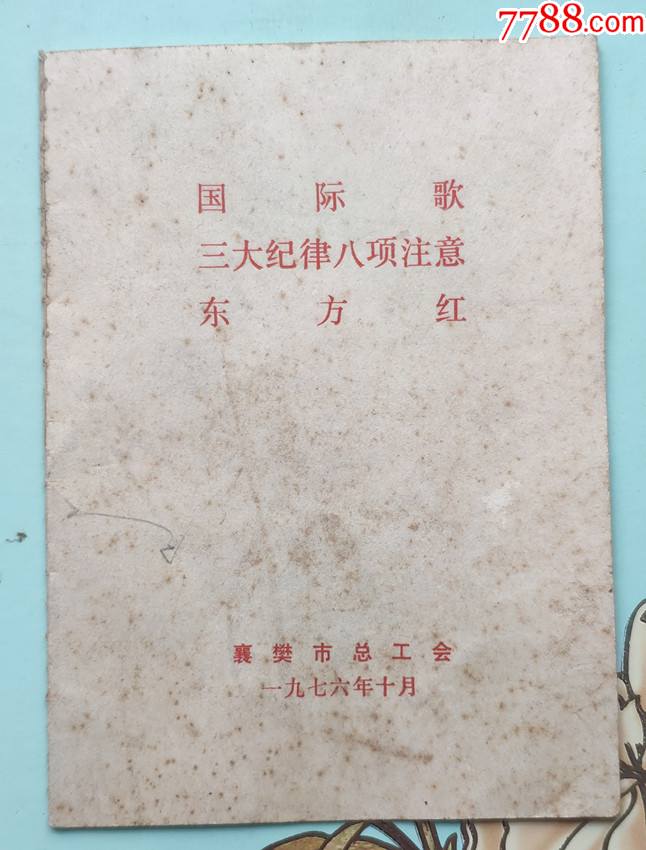 7788.com
国际歌
三大纪律八项注意
东方红
襄樊市总工会
一九七六年十月